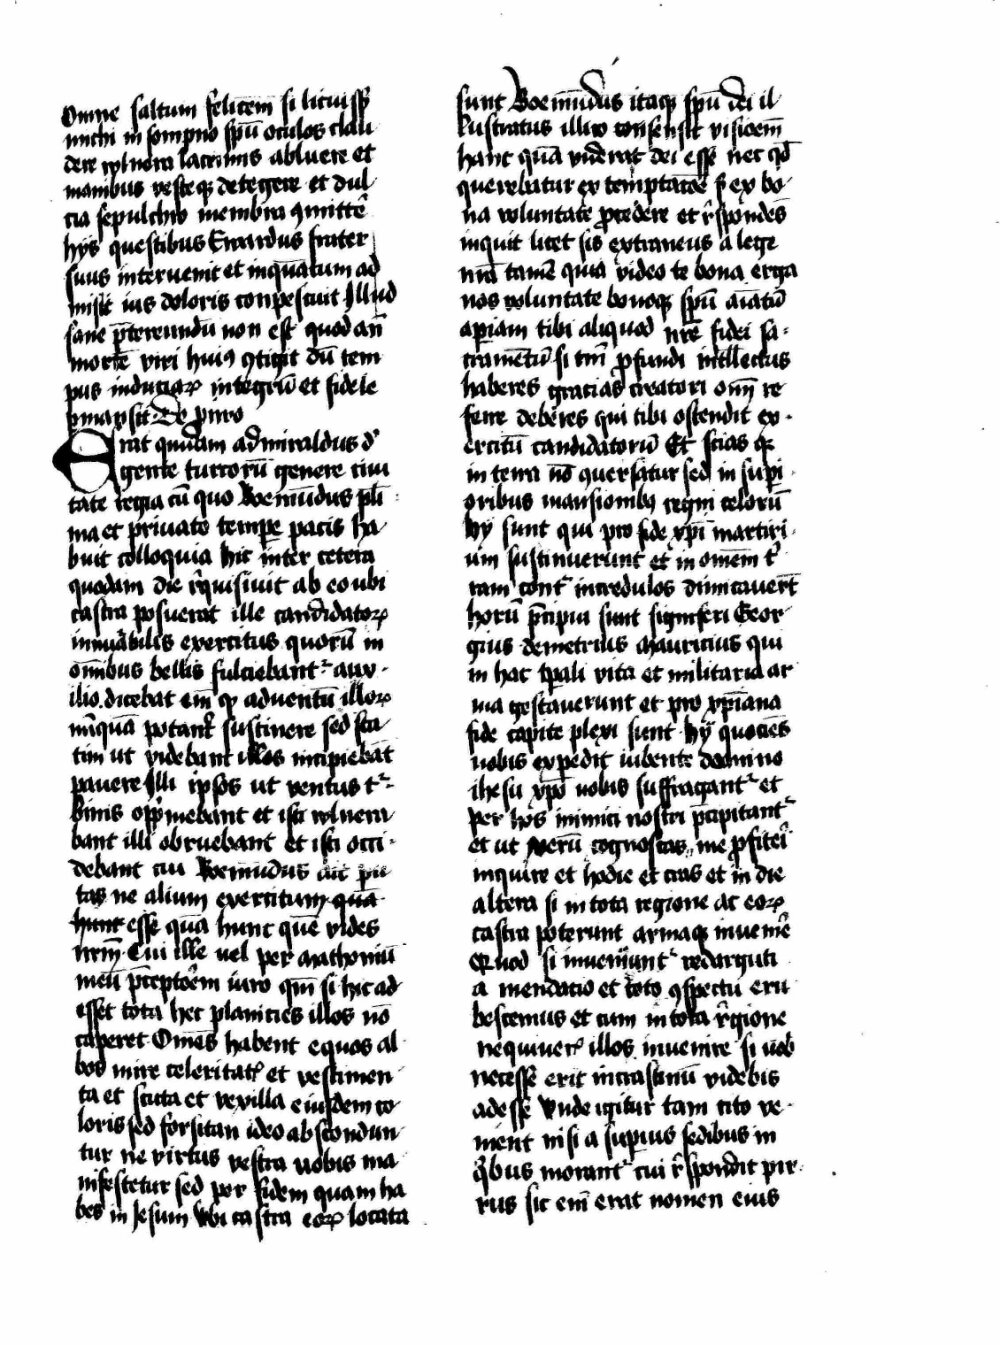 Omne saltum felicem si licuiss&
michi in sompno spū oculos clau
dere wlnera lacrimis abluere et
manibus vesteqꝫ detegere et dul
cia sepulchro membra ꝯmittē
hys questibus Enardus frater
suus intervenit et inquātum ad
misit ius doloris conpescuit Illud
sane p̄tereundū non est quod an̄
mortē viri huiꝰ ꝯtigit dū tem
pus induciaꝝ integrū et fidele
pmansit · De pirro
Erat quidam admiraldus d'
gente turcorū genere civi
tate regia cū quo Boemūdus pli
ma et privato tempe pacis ha
buit colloquia hic inter cetera
quodam die r̄quisivit ab eo ubi
castra posuerat ille candidatoꝝ
innūabilis exercitus quorū in
omībus bellis fulciebantᷣ aux
ilio dicebat em̄ qꝫ adventū illoꝝ
nūquā potant sustinere sed sta
tim ut videbant illos incipiebāt
pavere Illi ipsos ut ventus tᷣ
binis opp̄mebant et isti wlnera
bant illi obruebant et isti occi
debant cui Boemūdus ait pu
tas ne alium exercitum quā
hunc esse quā hunc quē vides
nrm̄ · Cui ille vel per mathomū
meū p̄ceptorēm iuro qm̄ si hic ad
esset tota hec planicies illos nō
caperet Omēs habent equos al
bos mire celeritatꝭ et vestimen
ta et scuta et vexilla eiusdem co
loris sed forsitan ideo abscondun
tur ne virtus vestra vobis ma
nifestetur sed per fidem quam ha
bes in Jesum vbi castra eoꝝ locata
sunt Boemūdus itaqꝫ spū dei il
lustratus illico consensit visioēm
hanc quā viderat dei esse nec qd̄
querebatur ex temptatōe sꝫ ex bo
na voluntate ꝓcedere et r̄spondēs
inquit licet sis extraneus a lege
nrā tamē quia video te bona erga
nos voluntate bonoqꝫ spū aīatū
apiam tibi aliquod nrē fidei sa
cramētū si tm̄ ꝓfundi intllectus
haberes gracias creatori om̄i re
ferre deberes qui tibi ostendit ex
ercitū candidatorū Et scias qꝫ
in terra nō ꝯversatur sed in supi
oribus mansionibꝫ regni celorū
hy sunt qui pro fide xp̄i martiri
um sustinuerunt et in omēm t'
ram contᷣ incredulos dimicauerūt
horū p̄cipui sunt signiferi Geor
gius demetrius mauricius qui
in hac tpali vita et militaria ar
ma gestaverunt et pro xp̄iana
fide capite plexi sunt hy quociēs
nobis expedit iubente domino
ihesu xp̄o nobis suffragantᷣ et
per hos inimici nostri p̄cipitantᷣ
et ut verū cognoscas me ꝓfiteri
inquire et hodie et cras et in die
altera si in tota regione ac eoꝝ
castra poterunt armaqꝫ invenīre
Quod si inveniunt' redarguti
a mendacio et toto ꝯspectu eru
bescemus et cum in tota r̄gione
nequiverꝭ illos invenire si uob
necesse erit incrastinū videbis
adesse Vnde igitur tam cito ve
niēnt nisi a supius sedibus in
q̄bus morantᷣ cui r̄spondit pir
rus sic em̄ erat nomen eius